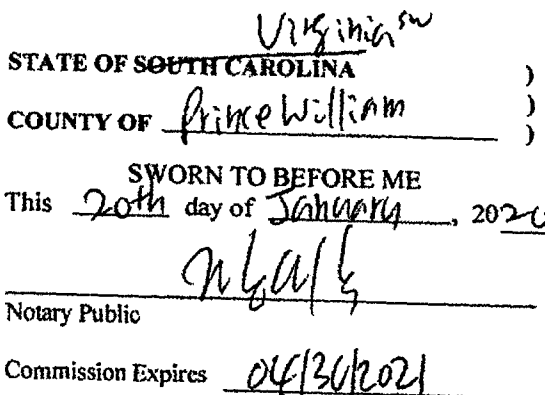 Virginia SW
STATE OF SOUTH CAROLINA )
COUNTY OF Prince William )
)
SWORN TO BEFORE ME
This 20th day of January, 2020
Notary Public
Commission Expires 04/30/2021